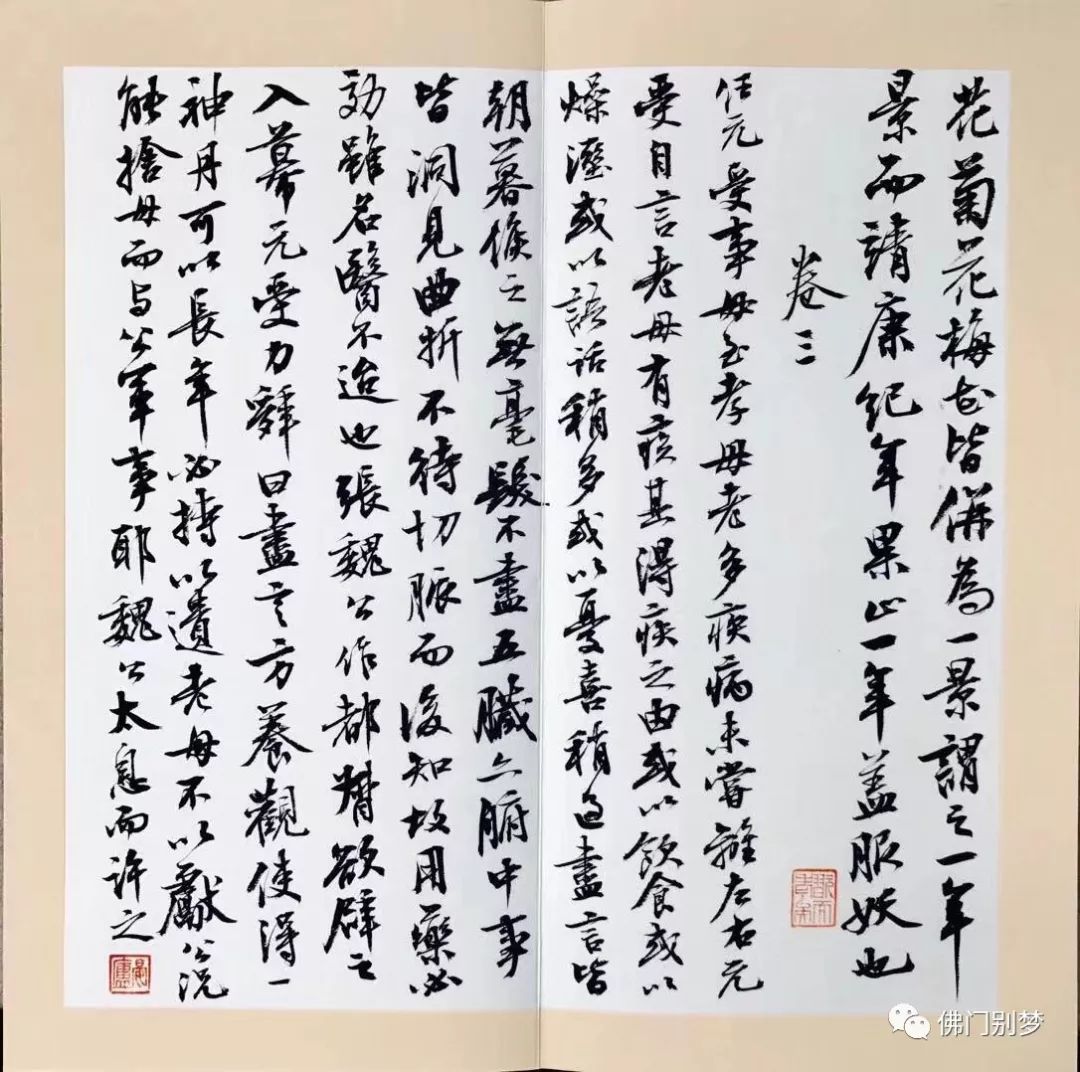 花菊花梅花皆併為一景謂之一年
景而靖康紀年果止一年蓋服妖也
卷三
任元受事母至孝母老多疾病未嘗離左右元
受自言老母有疾其得疾之由或以飲食或以
燥濕或以語話稍多或以憂喜稍過盡言皆
朝暮候之無毫髮不盡五臟六腑中事
皆洞見曲折不待切脈而後知故用藥必
効雖名醫不迨也張魏公作都督欲辟之
入幕元受力辭曰盡言方養觀使得一
神丹可以長年必持以遺老母不以獻公況
能捨母而与公軍事耶魏公太息而許之
佛门别梦